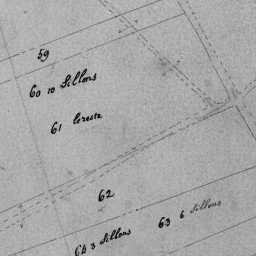 59
60 10 Sillons
61 le reste
62
63 6 Sillons
64 3 Sillons